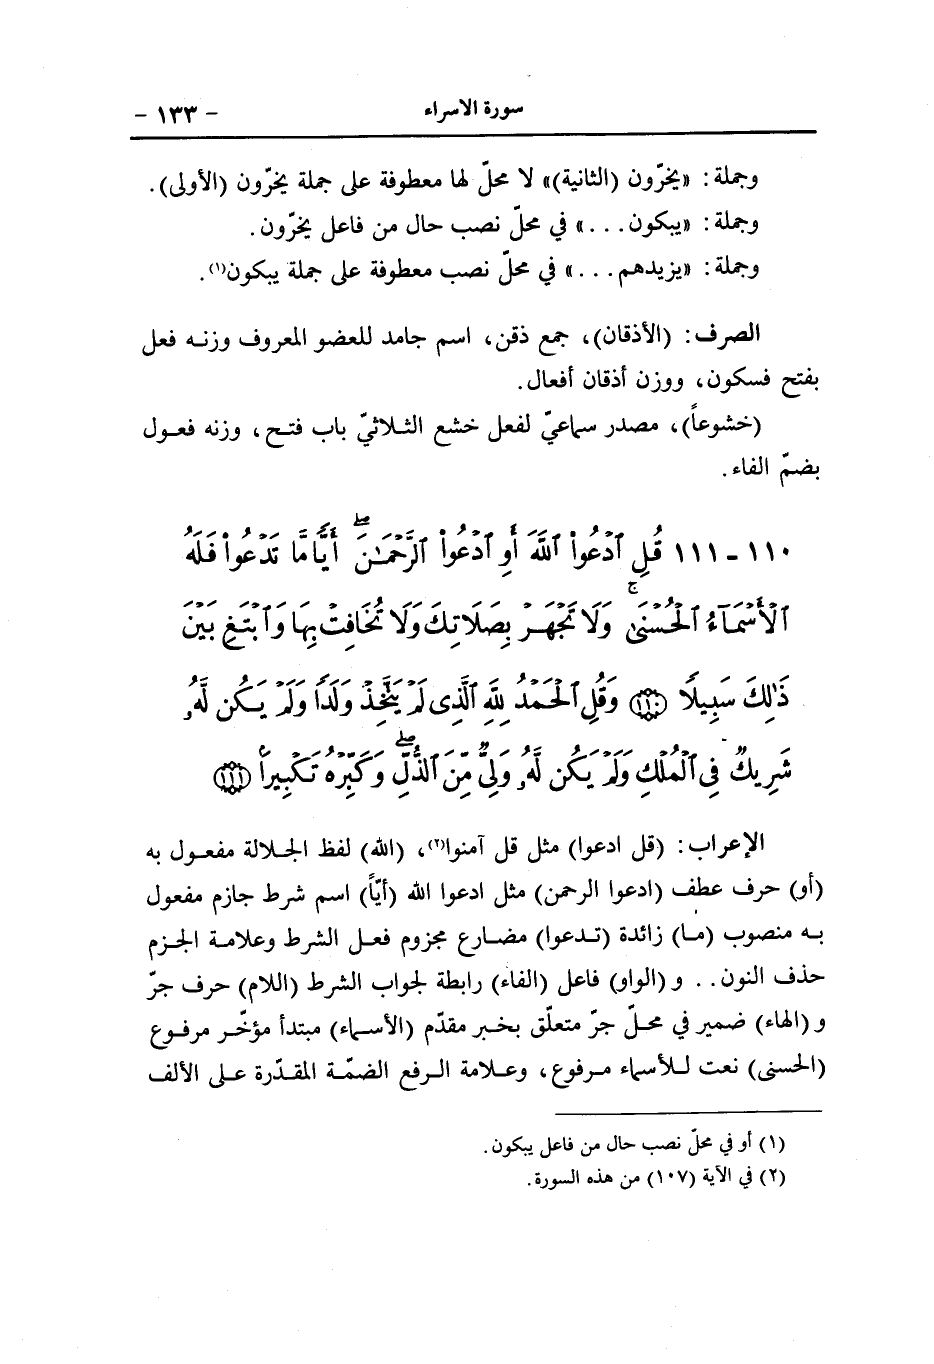 سورة الاسراء - ١٣٣ -
وجملة: «يخرّون (الثانية)» لا محلّ لها معطوفة على جملة يخرّون (الأولى).
وجملة: «يبكون...» في محلّ نصب حال من فاعل يخرّون.
وجملة: «يزيدهم...» في محلّ نصب معطوفة على جملة يبكون(١).
الصرف: (الأذقان)، جمع ذقن، اسم جامد للعضو المعروف وزنه فعل
بفتح فسكون، ووزن أذقان أفعال.
(خشوعاً)، مصدر سماعيّ لفعل خشع الثلاثيّ باب فتح، وزنه فعول
بضمّ الفاء.
١١٠ - ١١١ قُلِ ٱدْعُوا۟ ٱللَّهَ أَوِ ٱدْعُوا۟ ٱلرَّحْمَـٰنَ ۖ أَيًّا مَّا تَدْعُوا۟ فَلَهُ
ٱلْأَسْمَآءُ ٱلْحُسْنَىٰ ۚ وَلَا تَجْهَرْ بِصَلَاتِكَ وَلَا تُخَافِتْ بِهَا وَٱبْتَغِ بَيْنَ
ذَٰلِكَ سَبِيلًا ﴿١١٠﴾ وَقُلِ ٱلْحَمْدُ لِلَّهِ ٱلَّذِى لَمْ يَتَّخِذْ وَلَدًا وَلَمْ يَكُن لَّهُۥ
شَرِيكٌ فِى ٱلْمُلْكِ وَلَمْ يَكُن لَّهُۥ وَلِىٌّ مِّنَ ٱلذُّلِّ ۖ وَكَبِّرْهُ تَكْبِيرًا ﴿١١١﴾
الإعراب: (قل ادعوا) مثل قل آمنوا(٢)، (الله) لفظ الجلالة مفعول به
(أو) حرف عطف (ادعوا الرحمن) مثل ادعوا الله (أيّاً) اسم شرط جازم مفعول
به منصوب (ما) زائدة (تدعوا) مضارع مجزوم فعل الشرط وعلامة الجزم
حذف النون.. و (الواو) فاعل (الفاء) رابطة لجواب الشرط (اللام) حرف جرّ
و (الهاء) ضمير في محلّ جرّ متعلّق بخبر مقدّم (الأسماء) مبتدأ مؤخّر مرفوع
(الحسنى) نعت للأسماء مرفوع، وعلامة الرفع الضمّة المقدّرة على الألف
(١) أو في محلّ نصب حال من فاعل يبكون.
(٢) في الآية (١٠٧) من هذه السورة.